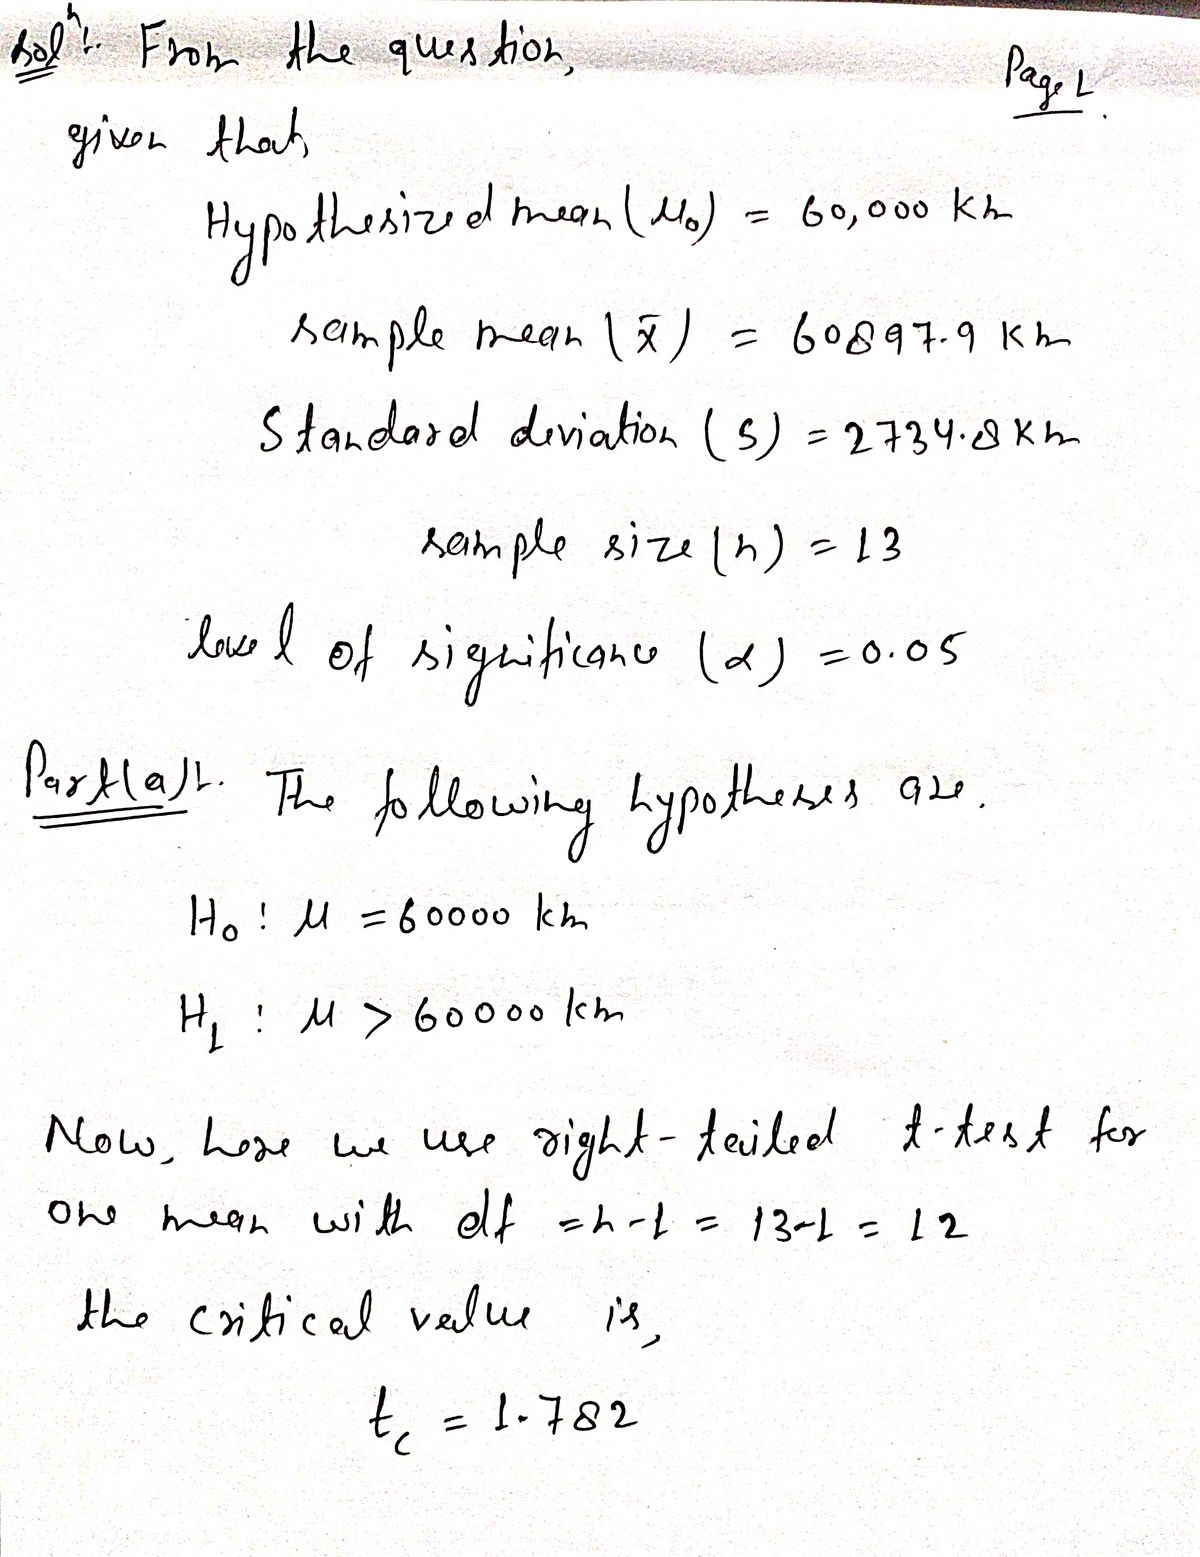 Solⁿ:- From the question,
Page 1.
given that,
Hypothesized mean (μ₀) = 60,000 km
sample mean (x̄) = 60897.9 km
Standard deviation (s) = 2734.8 km
sample size (n) = 13
level of significance (α) = 0.05
Part(a):- The following hypotheses are.
H₀ : μ = 60000 km
H₁ : μ > 60000 km
Now, here we use right-tailed t-test for
one mean with df = n-1 = 13-1 = 12
the critical value is,
t_c = 1.782